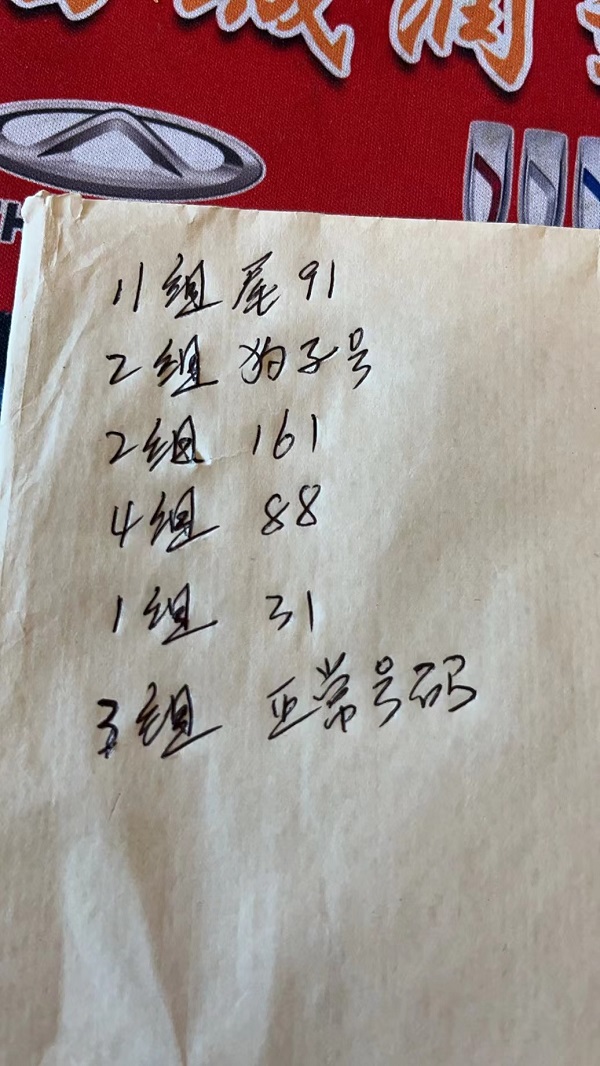 诚润
11组 尾91
2组 狗子号
2组 161
4组 88
1组 31
3组 正常号码